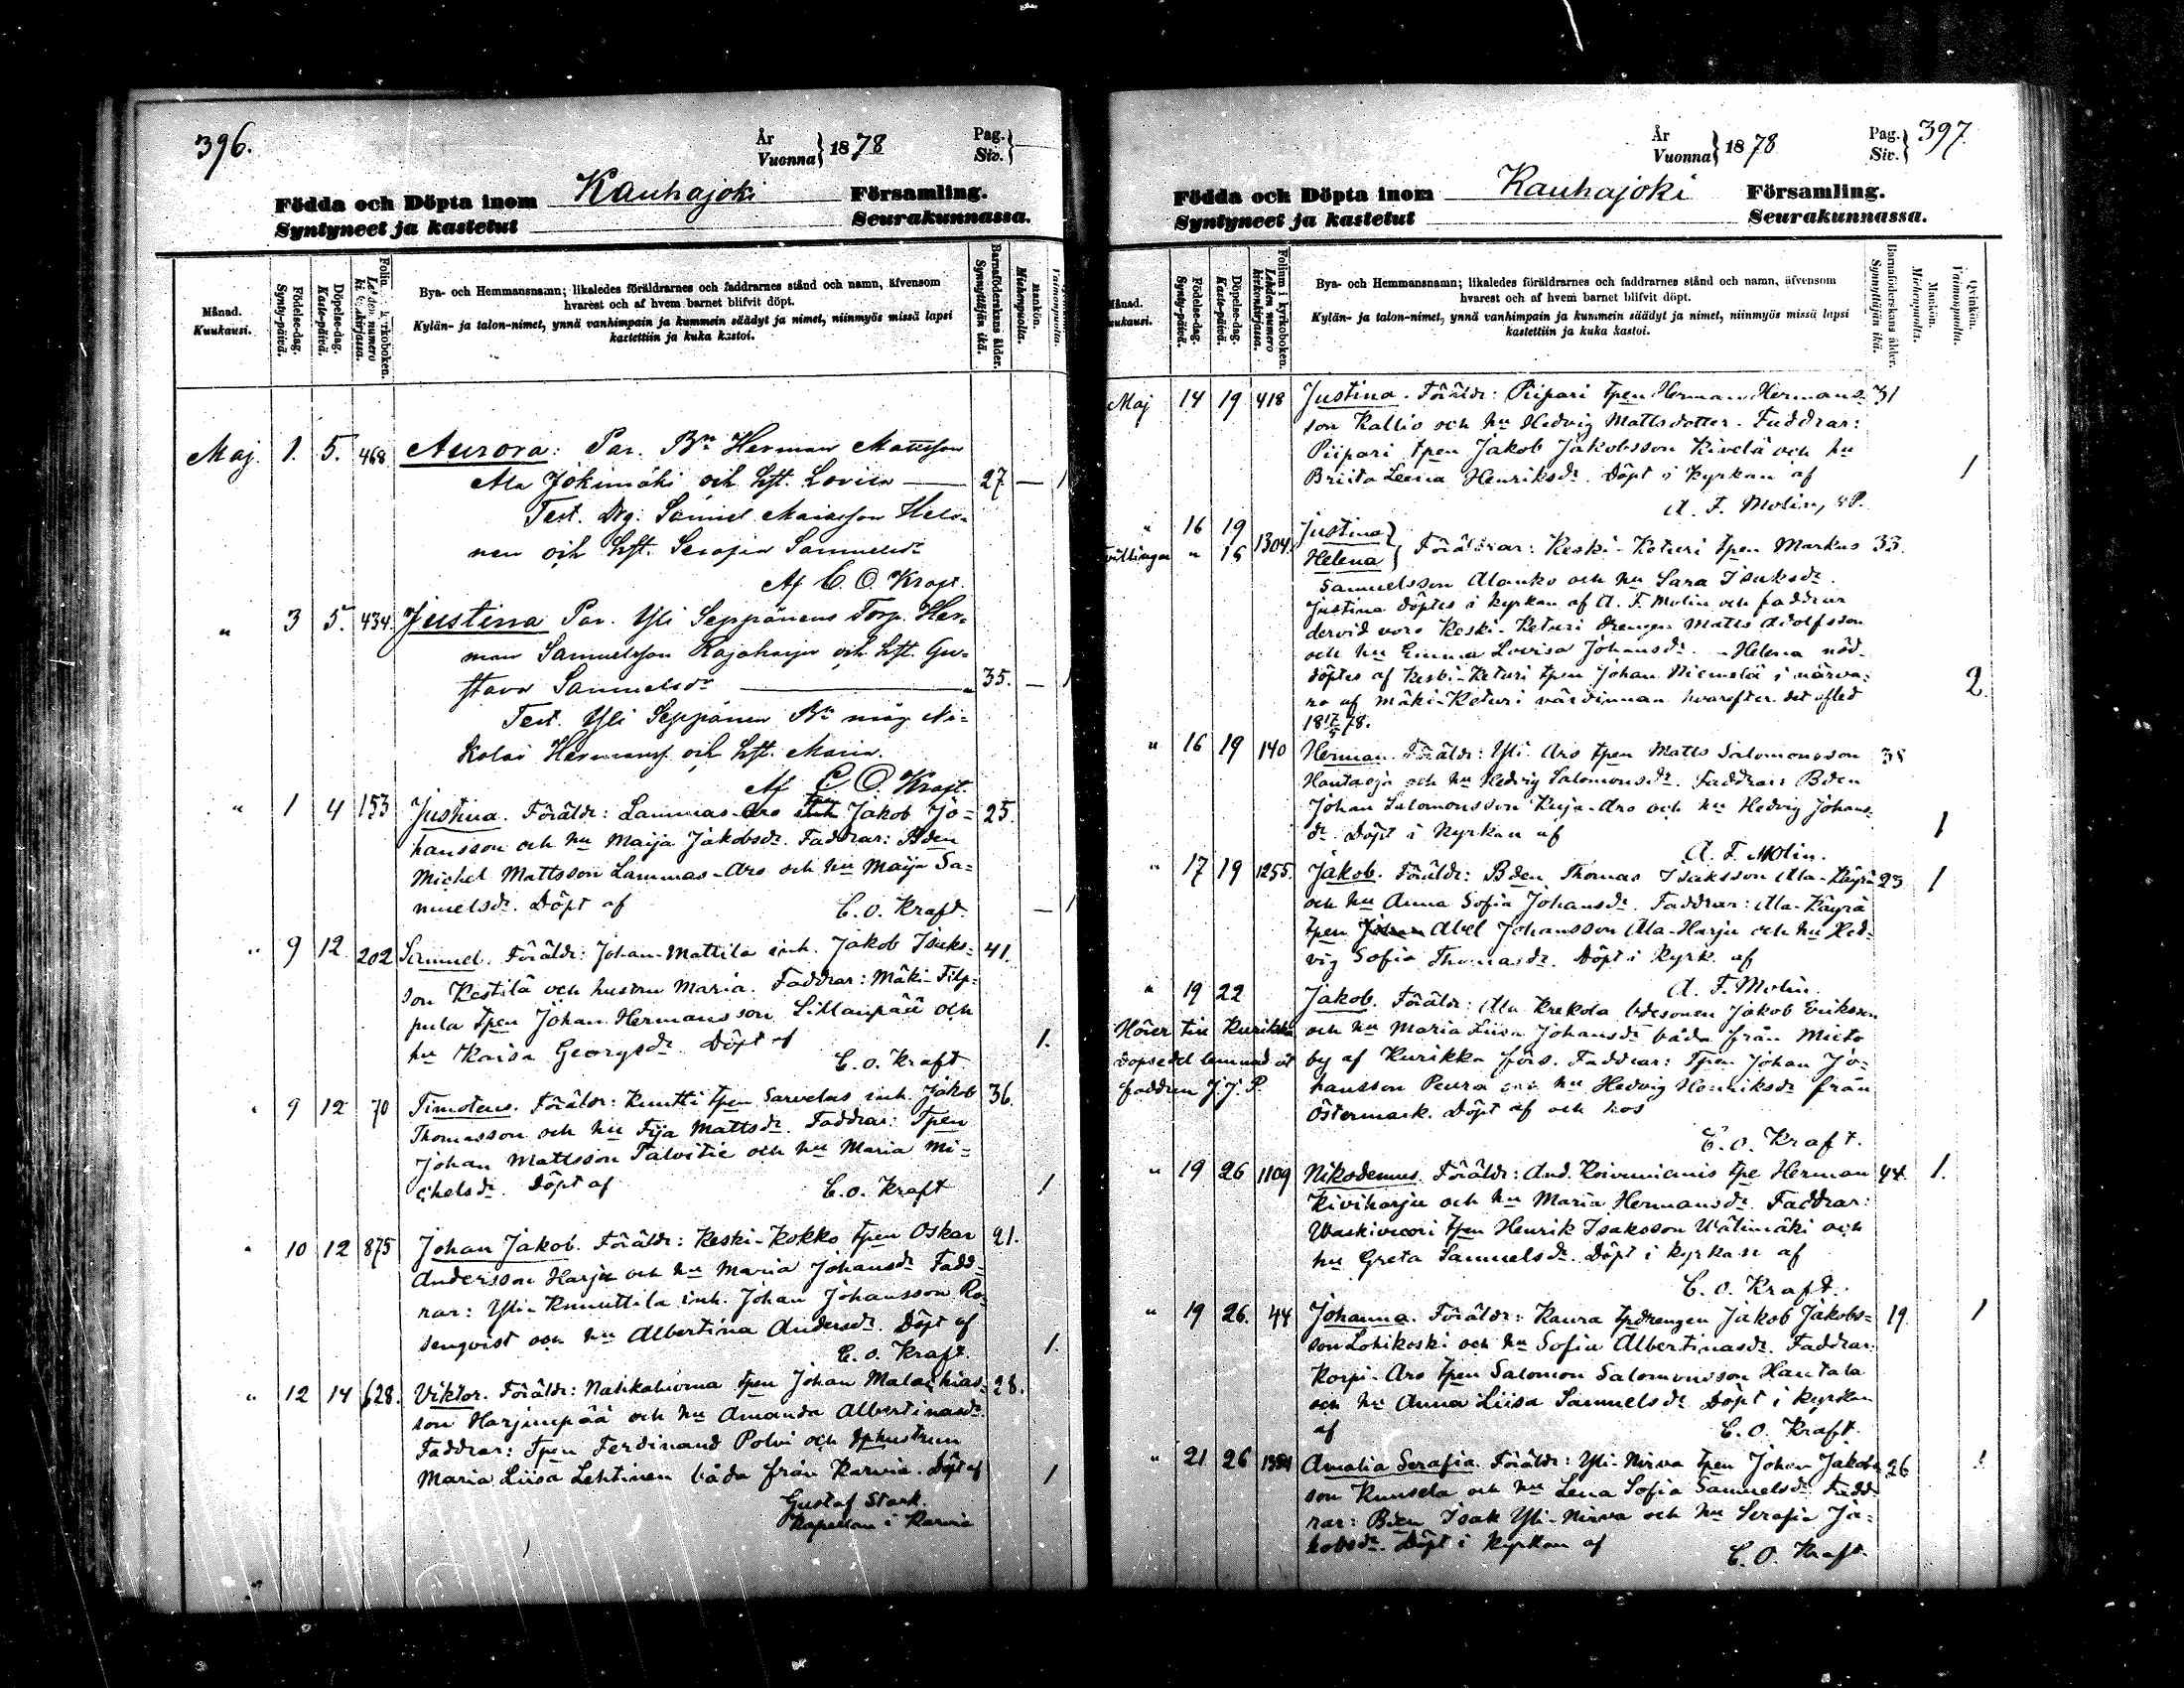 396.
År
Vuonna} 1878
Pag.
Siv.}
Födda och Döpta inom Kauhajoki Församling.
Syntyneet ja kastetut Seurakunnassa.
Månad.
Kuukausi.
Födelse-dag.
Synty-päivä.
Döpelse-dag.
Kaste-päivä.
Bya- och Hemmansnamn; likaledes föräldrarnes och faddrarnes stånd och namn, äfvensom
hvarest och af hvem barnet blifvit döpt.
Kylän- ja talon-nimet, ynnä vanhimpain ja kummein säädyt ja nimet, niinmyös missä lapsi
kastettiin ja kuka kastoi.
Barnaföderskans ålder.
Synnyttäjän ikä.
Mankön.
Miehenpuolta.
Vaimonpuolta.
Maj. 1. 5. 468 Aurora: Par. Bn Herman Mattsson
Ala Jokimäki och hst. Lovisa — 27 — 1
Test. Drg. Samuel Mattsson
nen och hst. Serafia Samuelsdr
Af C. O. Kraft.
" 3 5. 434. Justina Par. Yli Seppänens Torp. Her-
man Samuelsson Rajaharju och hst. Gu-
stava Samuelsdr — 35. — 1
Test. Yli Seppänen Bn måg Ni-
kolai Hermanss. och hst. Maria.
Af C. O. Kraft.
" 1 4 153 Justina. Föräldr: Lammas-Aro tpen Jakob Jo- 25.
hansson och hu Maija Jakobsdr. Faddrar: Bden
Michel Mattsson Lammas-Aro och hu Maija Sa-
muelsdr. Döpt af C. O. Kraft. — 1
" 9 12 202 Samuel. Föräldr: Johan-Mattila inh. Jakob Isaks- 41.
son Kestilä och hustru Maria. Faddrar: Mäki-Filp-
pula tpen Johan Hermansson Sillanpää och
hu Kaisa Georgsdr. Döpt af 1.
C. O. Kraft.
" 9 12 70 Timoteus. Föräldr: Knutti tpen Sarvelas inh. Jakob 36.
Thomasson och hu Fija Mattsdr. Faddrar: Tpen
Johan Mattsson Talvitie och hu Maria Mi-
chelsdr. Döpt af C. O. Kraft 1
" 10 12 875 Johan Jakob. Föräldr: Keski-Kokko tpen Oskar 21.
Andersson Harju och hu Maria Johansdr. Fadd-
rar: Yli-Knuuttila inh. Johan Johansson Ro-
senqvist och hu Albertina Andersdr. Döpt af
C. O. Kraft. 1.
" 12 14 628. Viktor. Föräldr: tpen Johan Malachias- 28.
son Harjunpää och hu Amanda Albertinasdr.
Faddrar: Tpen Ferdinand Polvi och tphustrun
Maria Liisa Lehtinen båda från Karvia. Döpt af 1
Gustaf Stark.
Kapellan i Karvia
År
Vuonna} 1878
Pag.
Siv.} 397.
Födda och Döpta inom Kauhajoki Församling.
Syntyneet ja kastetut Seurakunnassa.
Månad.
Kuukausi.
Födelse-dag.
Synty-päivä.
Döpelse-dag.
Kaste-päivä.
Folium i kyrkoboken.
Lehden numero
kirkonkirjassa.
Bya- och Hemmansnamn; likaledes föräldrarnes och faddrarnes stånd och namn, äfvensom
hvarest och af hvem barnet blifvit döpt.
Kylän- ja talon-nimet, ynnä vanhimpain ja kummein säädyt ja nimet, niinmyös missä lapsi
kastettiin ja kuka kastoi.
Barnaföderskans ålder.
Synnyttäjän ikä.
Mankön.
Miehenpuolta.
Qvinkön.
Vaimonpuolta.
Maj 14 19 418 Justina. Föräldr: Piipari tpen Herman Hermans- 31
son Kallio och hu Hedvig Mattsdotter. Faddrar:
Piipari tpen Jakob Jakobsson Kivelä och hu
Briita Leena Henriksdr. Döpt i Kyrkan af 1
A. F. Molin, v.P.
" 16 19 Justina}
Tvillingar " 16 1304. Helena} Föräldrar: Keski-Keturi tpen Markus 33.
Samuelsson Alanko och hu Sara Isaksdr.
Justina döptes i kyrkan af A. F. Molin och faddrar
dervid voro Keski-Keturi drengen Matts Adolfsson
och hu Emma Lovisa Johansdr. - Helena nöd-
döptes af Keski-Keturi tpen Johan Niemelä i närva-
ro af Mäki-Keturi värdinnan hvarefter det afled 2.
18 17/5 78.
" 16 19 140 Herman. Föräldr: Yli-Aro tpen Matts Salomonsson 38
Hautaoja och hu Hedvig Salomonsdr. Faddrar: Bden
Johan Salomonsson Kuja-Aro och hu Hedvig Johans-
dr. Döpt i Kyrkan af 1
A. F. Molin.
" 17 19 1255. Jakob. Föräldr: Bden Thomas Isaksson Ala-Käyrä 23 1
och hu Anna Sofia Johansdr. Faddrar: Ala-Käyrä
tpen Johan Abel Johansson Ala-Harju och hu Hed-
vig Sofia Thomasdr. Döpt i Kyrk. af
A. F. Molin.
" 19 22 Jakob. Föräldr: Ala Krekola bdesonen Jakob Eriksson
Hörer till Kurikka och hu Maria Liisa Johansdr båda från Mieto
dopsedel lemnad åt by af Kurikka förs. Faddrar: Tpen Johan Jo-
faddren J. J. P. hansson Peura och hu Hedvig Henriksdr från
Östermark. Döpt af och hos
C. O. Kraft.
" 19 26 1109 Nikodemus. Föräldr: And. Koivuniemis tpe Herman 44. 1.
Kiviharju och hu Maria Hermansdr. Faddrar:
Waskivuori tpen Henrik Isaksson Wälimäki och
hu Greta Samuelsdr. Döpt i kyrkan af
C. O. Kraft.
" 19 26. 44 Johanna. Föräldr: Kaura tpdrengen Jakob Jakobs- 19. 1
son Lohikoski och hu Sofia Albertinasdr. Faddrar:
Korpi-Aro tpen Salomon Salomonsson Hautala
och hu Anna Liisa Samuelsdr Döpt i kyrkan
af C. O. Kraft.
" 21 26 Amalia Serafia. Föräldr: Yli-Nirva tpen Johan Jakobs- 26 1
son Kunsela och hu Lena Sofia Samuelsdr Fadd-
rar: Bden Isak Yli-Nirva och hu Serafia Ja-
kobsdr. Döpt i kyrkan af
C. O. Kraft.